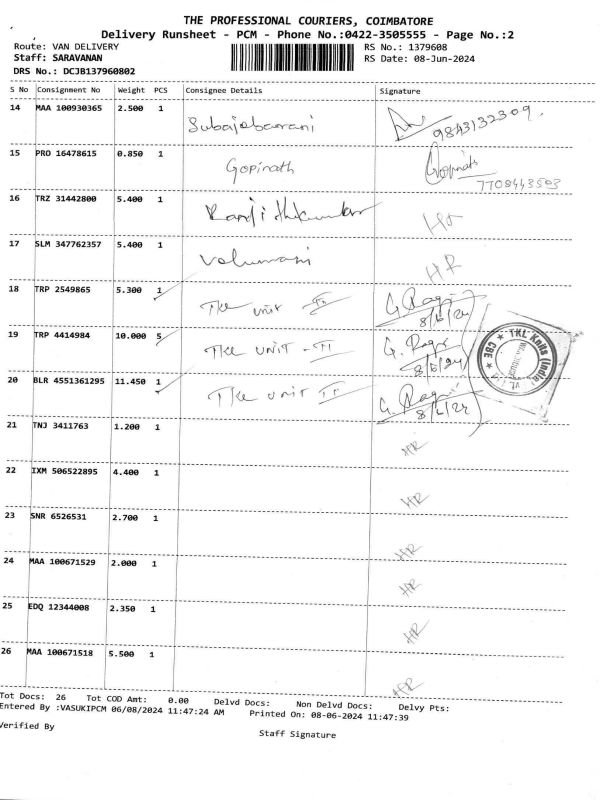 THE PROFESSIONAL COURIERS, COIMBATORE
Delivery Runsheet - PCM - Phone No.:0422-3505555 - Page No.:2
Route: VAN DELIVERY RS No.: 1379608
Staff: SARAVANAN RS Date: 08-Jun-2024
DRS No.: DCJB137960802
S No Consignment No Weight PCS Consignee Details Signature
14 MAA 100930365 2.500 1
9843132309
15 PRO 16478615 0.850 1 Gopinath Gopinath
7708443503
16 TRZ 31442800 5.400 1 Ranjithkumar
17 SLM 347762357 5.400 1 Velumani HR
18 TRP 2549865 5.300 1 TKL unit II G. Ragu
8/6/24
19 TRP 4414984 10.000 5 TKL UNIT - II G. Ragu
8/6/24
20 BLR 4551361295 11.450 1 TKL unit II G. Ragu
8/6/24
TKL Knits (India)
CBE
21 TNJ 3411763 1.200 1 HR
22 IXM 506522895 4.400 1 HR
23 SNR 6526531 2.700 1 HR
24 MAA 100671529 2.000 1 HR
25 EDQ 12344008 2.350 1 HR
26 MAA 100671518 5.500 1 HR
Tot Docs: 26 Tot COD Amt: 0.00 Delvd Docs: Non Delvd Docs: Delvy Pts:
Entered By :VASUKIPCM 06/08/2024 11:47:24 AM Printed On: 08-06-2024 11:47:39
Verified By Staff Signature